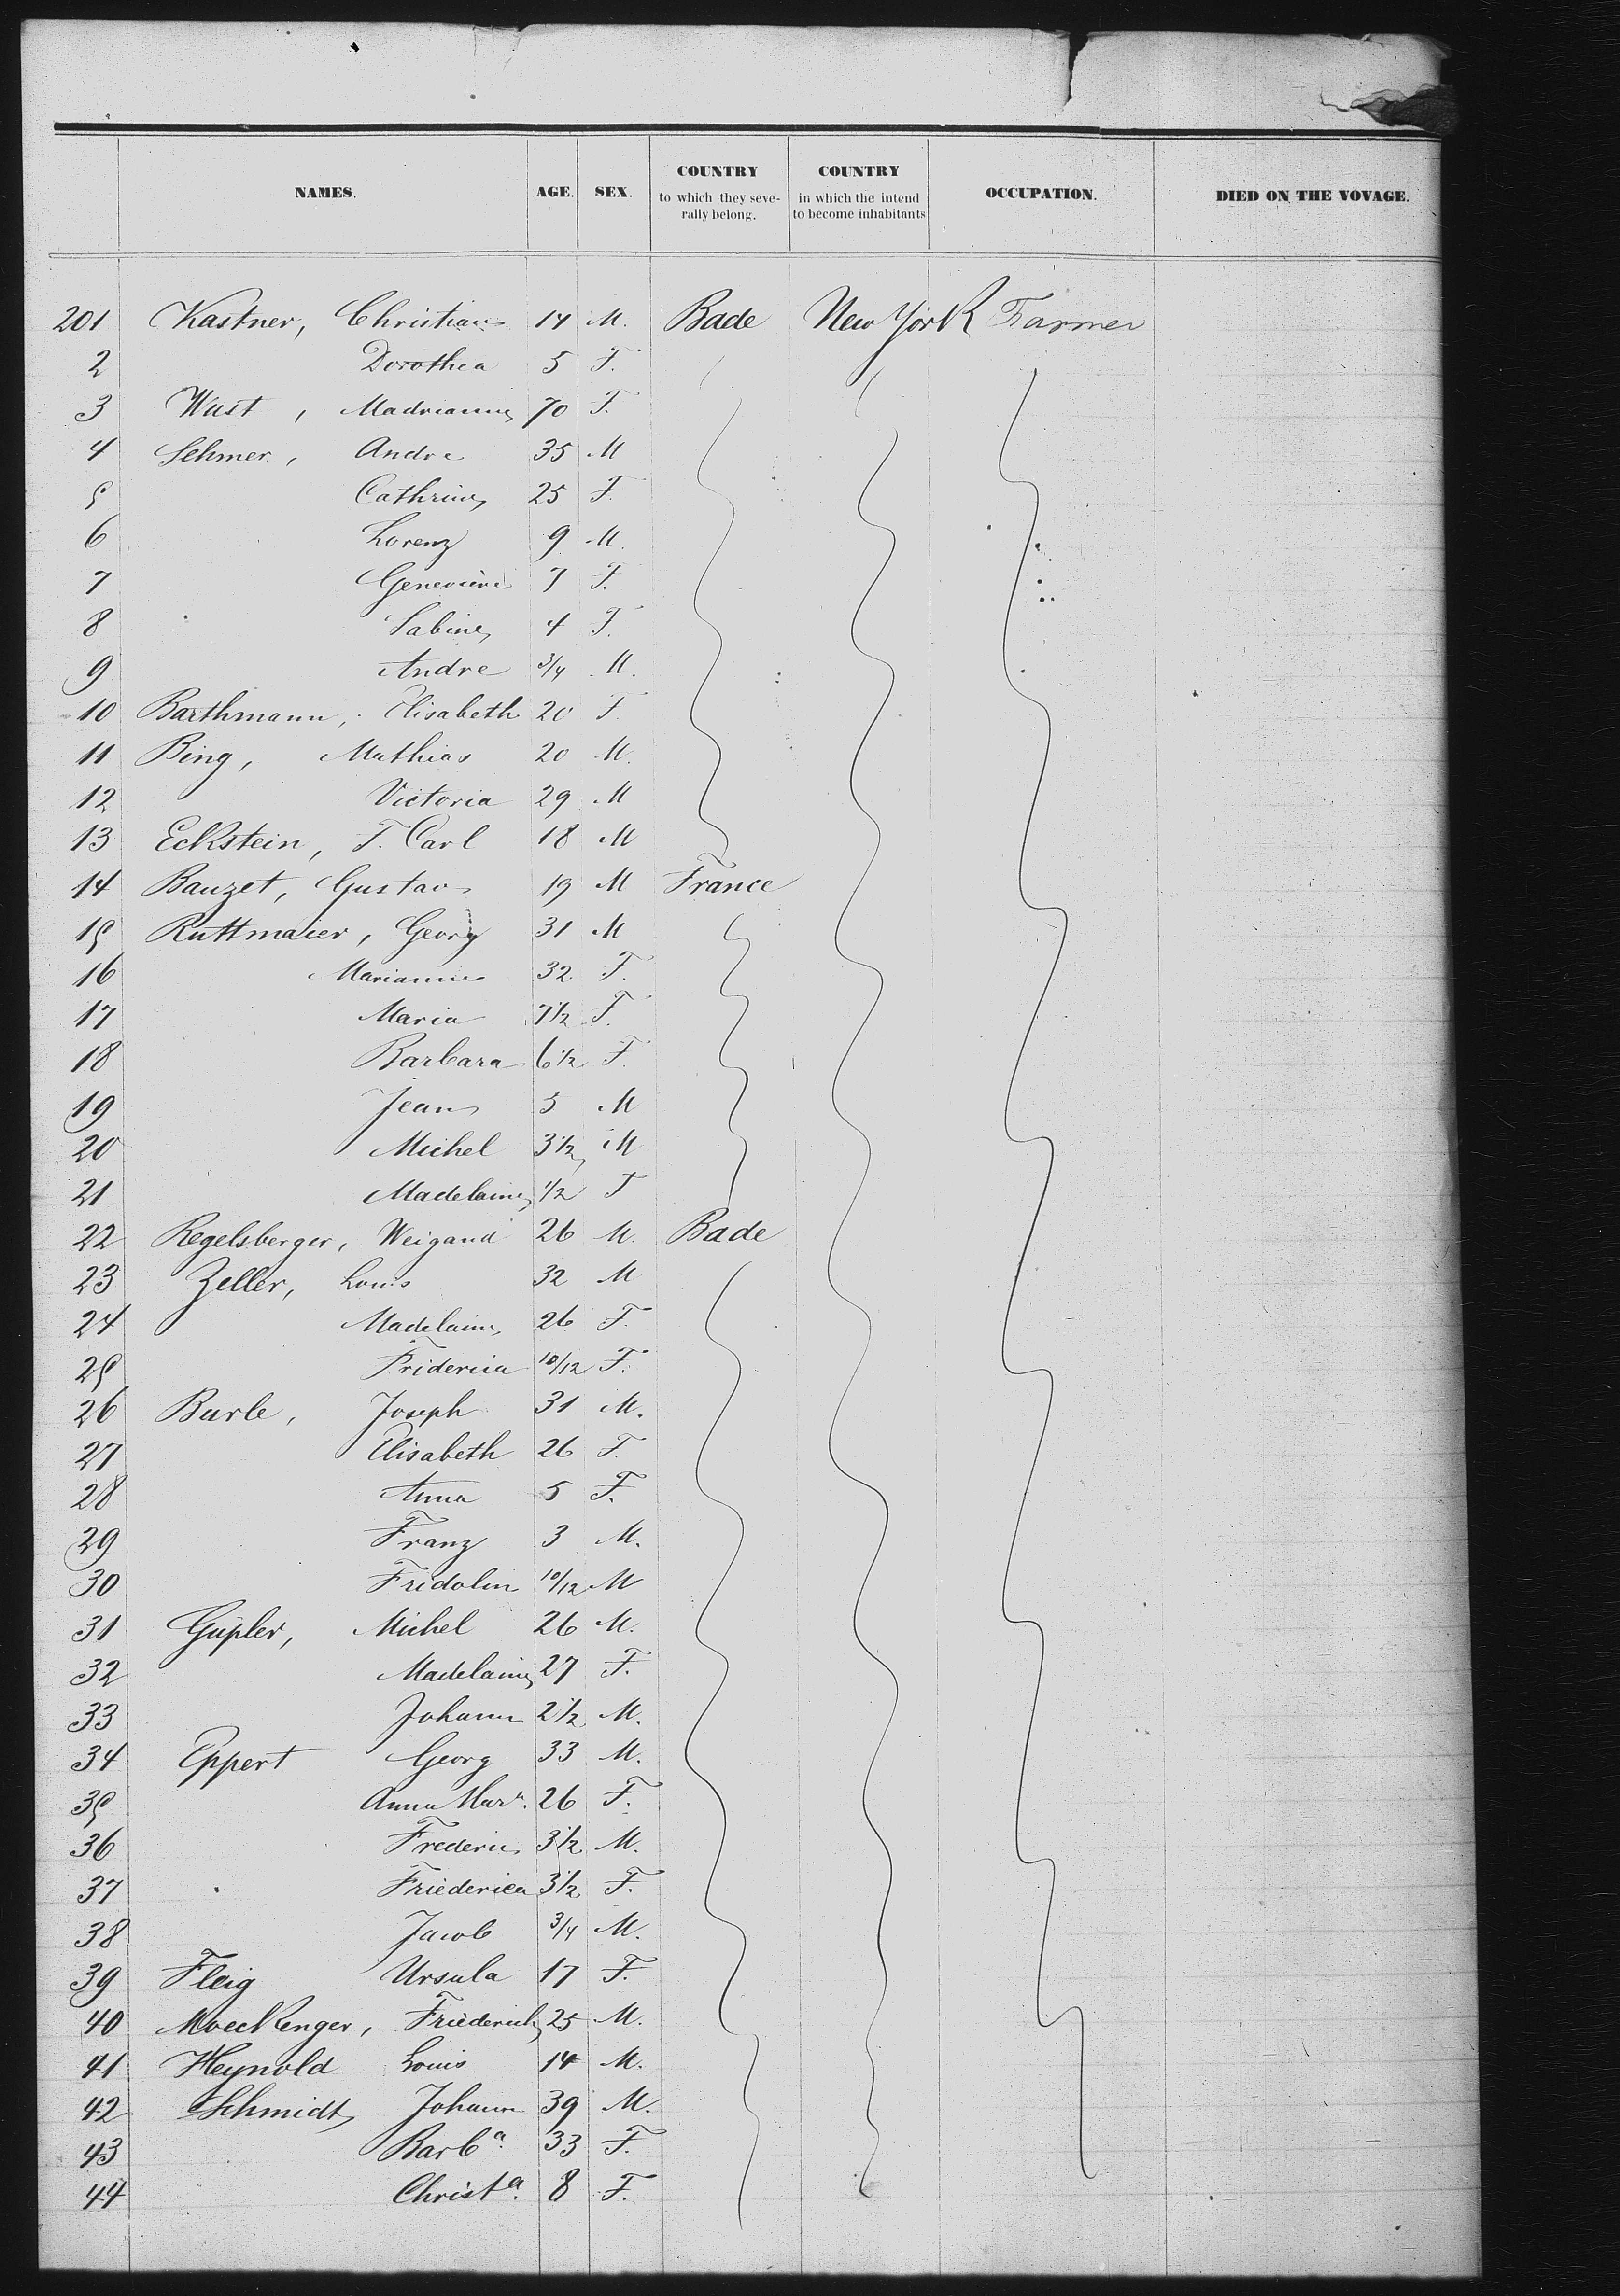 NAMES. AGE. SEX. COUNTRY to which they seve- rally belong. COUNTRY in which the intend to become inhabitants OCCUPATION. DIED ON THE VOVAGE.
201 Kastner, Christian 14 M. Bade New York Farmer
2 Dorothea 5 F.
3 Wust, 70 F.
4 Andre 35 M
5 Cathrine 25 F.
6 Lorenz 9 M.
7 Genevieve 7 F.
8 Sabine 4 F.
9 Andre 3/4 M.
10 Barthmann, Elisabeth 20 F.
11 Bing, Mathias 20 M.
12 Victoria 29 M
13 Eckstein, F. Carl 18 M
14 Bauzet, Gustav 19 M France
15 Ruttmaier, Georg 31 M
16 Marianne 32 F.
17 Maria 7 1/2 F.
18 Barbara 6 1/2 F.
19 Jean 5 M
20 Michel 3 1/2 M
21 Madelaine 1/2 F
22 Regelsberger, Weigand 26 M. Bade
23 Zeller, Louis 32 M
24 Madelaine 26 F.
25 Fridericia 10/12 F.
26 Burle, Joseph 31 M.
27 Elisabeth 26 F.
28 Anna 5 F.
29 Franz 3 M.
30 Fridolin 10/12 M
31 Gupler, Michel 26 M.
32 Madelaine 27 F.
33 Johann 2 1/2 M.
34 Eppert Georg 33 M.
35 Anna Mara. 26 F.
36 Frederic 3 1/2 M.
37 Friederica 3 1/2 F.
38 Jacob 3/4 M.
39 Fleig Ursula 17 F.
40 Moeckenger, Friederich 25 M.
41 Heynold Louis 14 M.
42 Schmidt Johann 39 M.
43 Barba. 33 F.
44 Christa. 8 F.